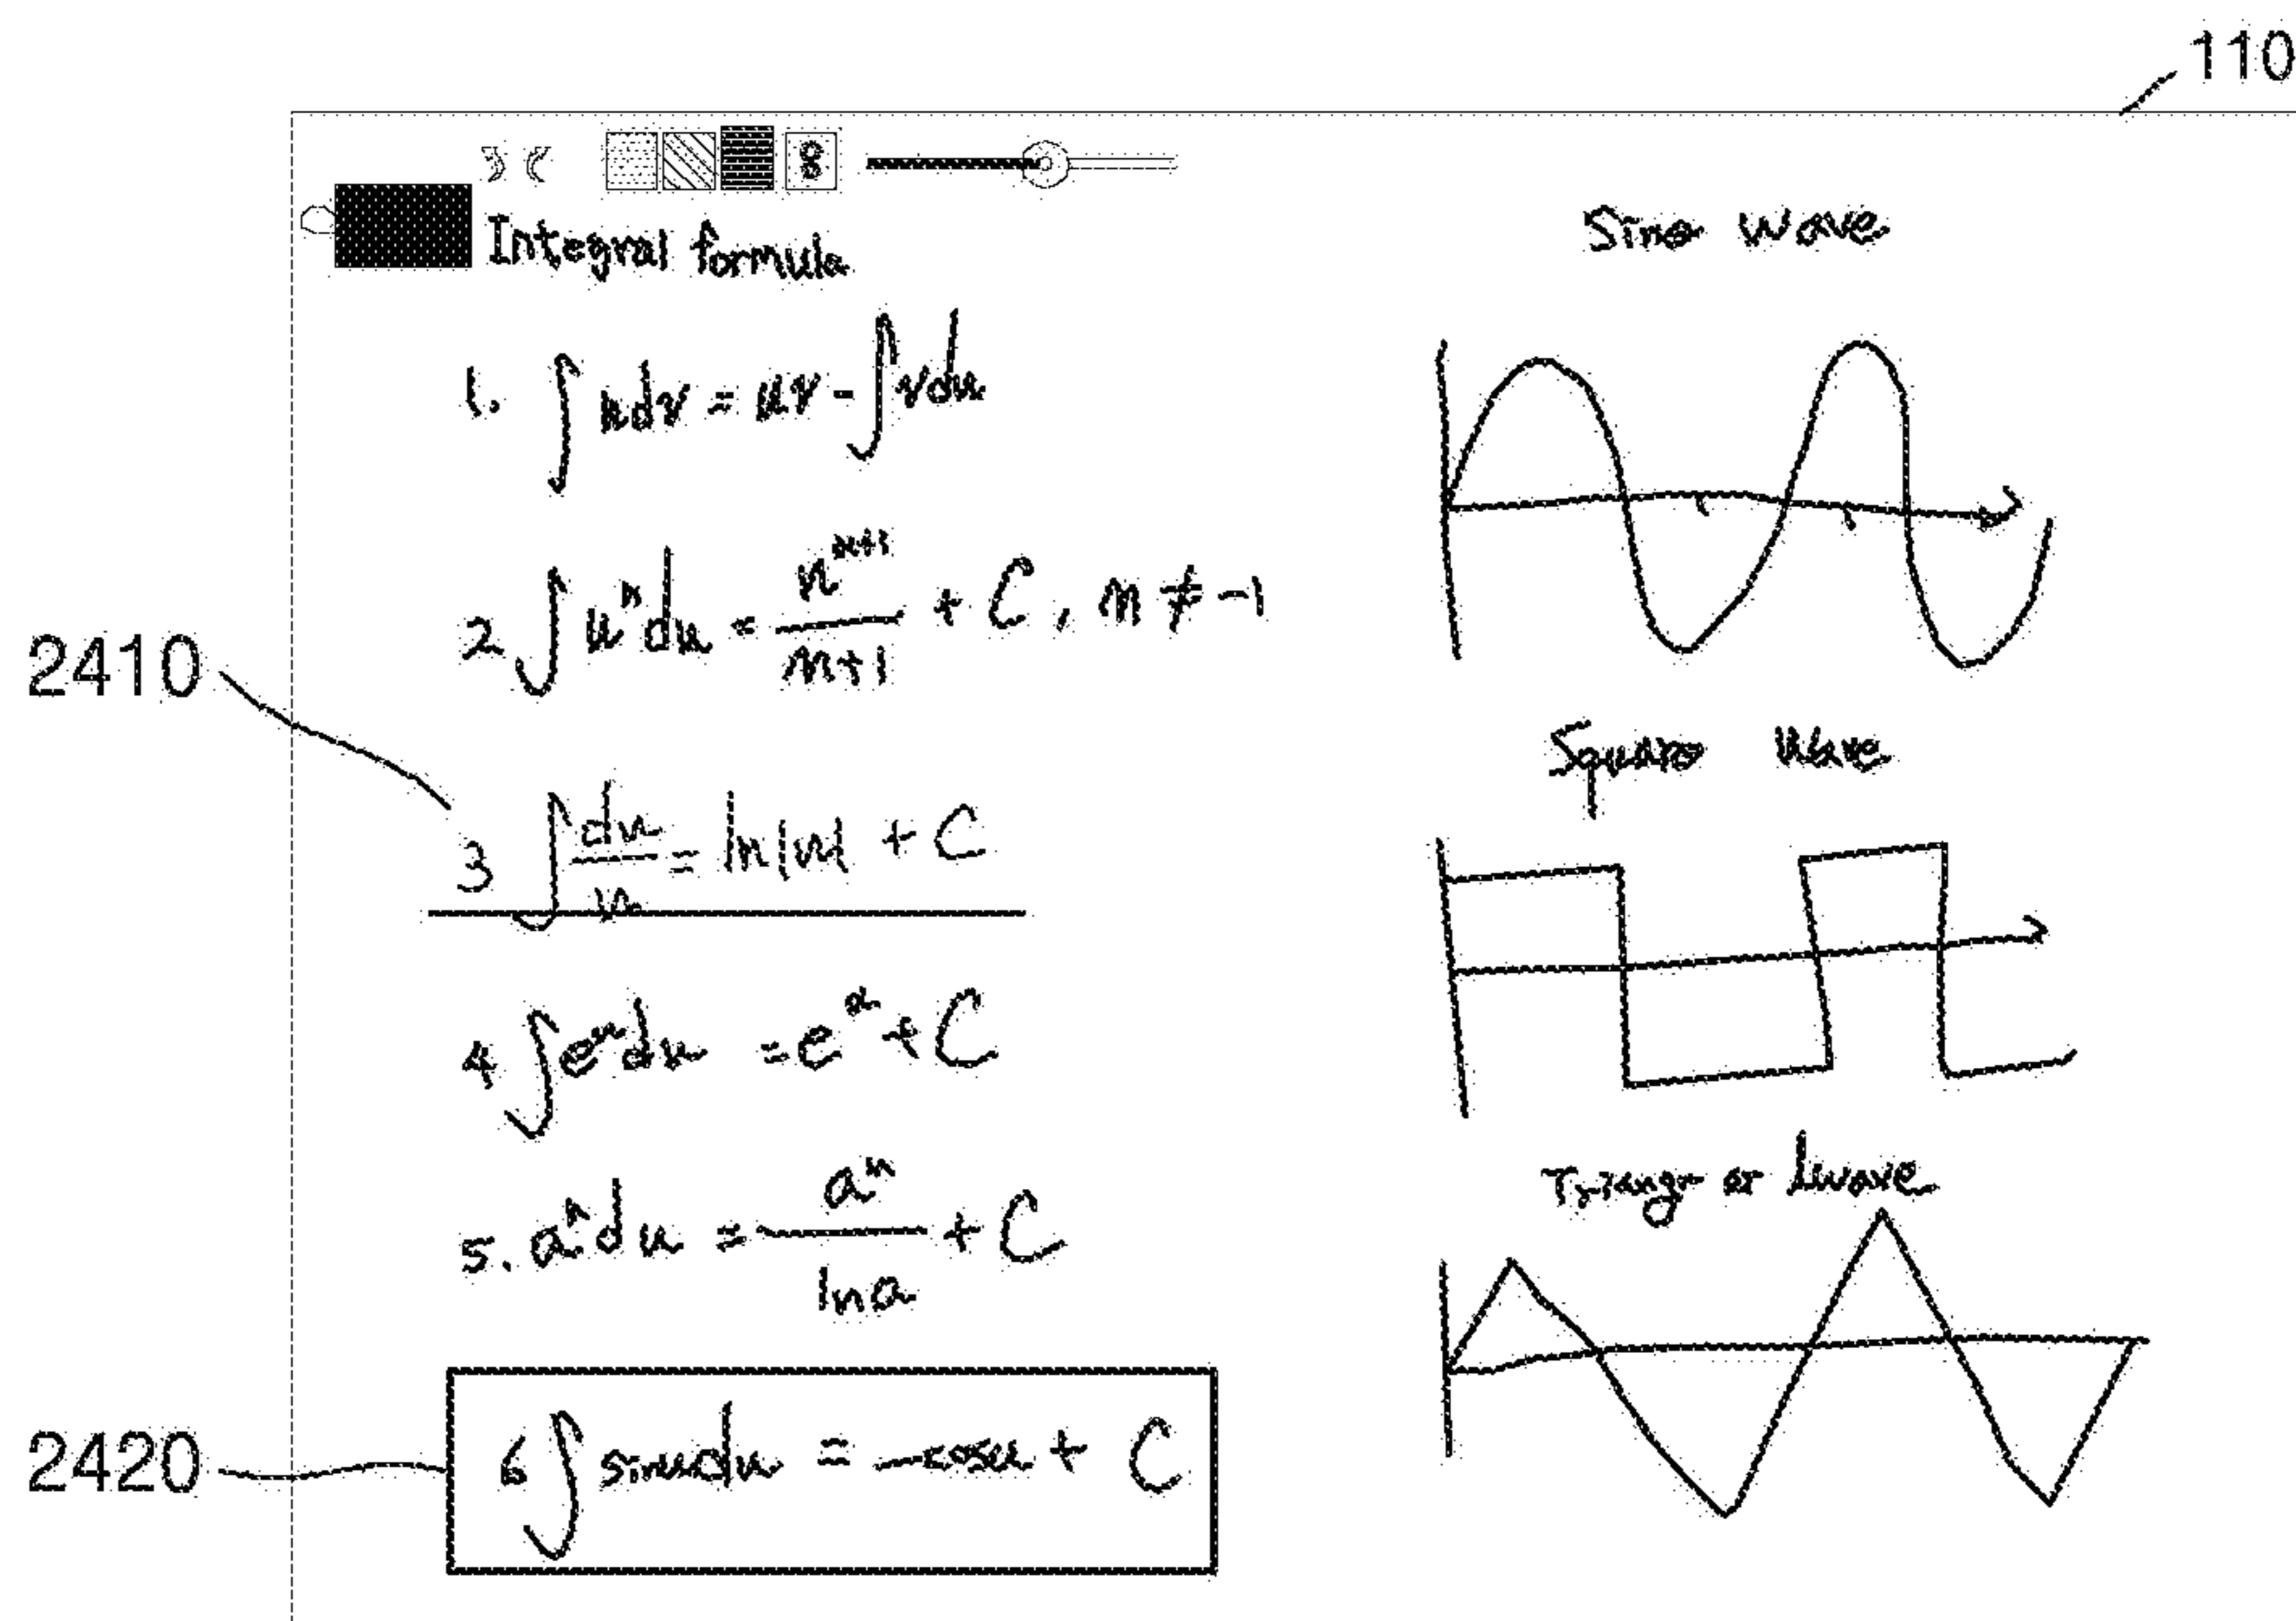 110
Integral formula
1. ∫udv = uv - ∫vdu
2 ∫uⁿdu = uⁿ⁺¹/n+1 + C, n ≠ -1
2410
3 ∫du/u = ln|u| + C
4 ∫eᵘdu = eᵘ + C
5. aᵘdu = aᵘ/lna + C
2420
6 ∫sinudu = -cosu + C
Sine wave
Square wave